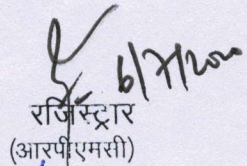 6/7/2020
रजिस्ट्रार
(आरपीएमसी)